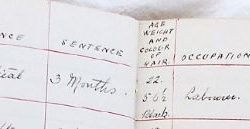 AGE
WEIGHT
AND
COLOUR
OF
HAIR.
SENTENCE
OCCUPATION
3 Months.
22.
5 6½
Labourer.
Black.